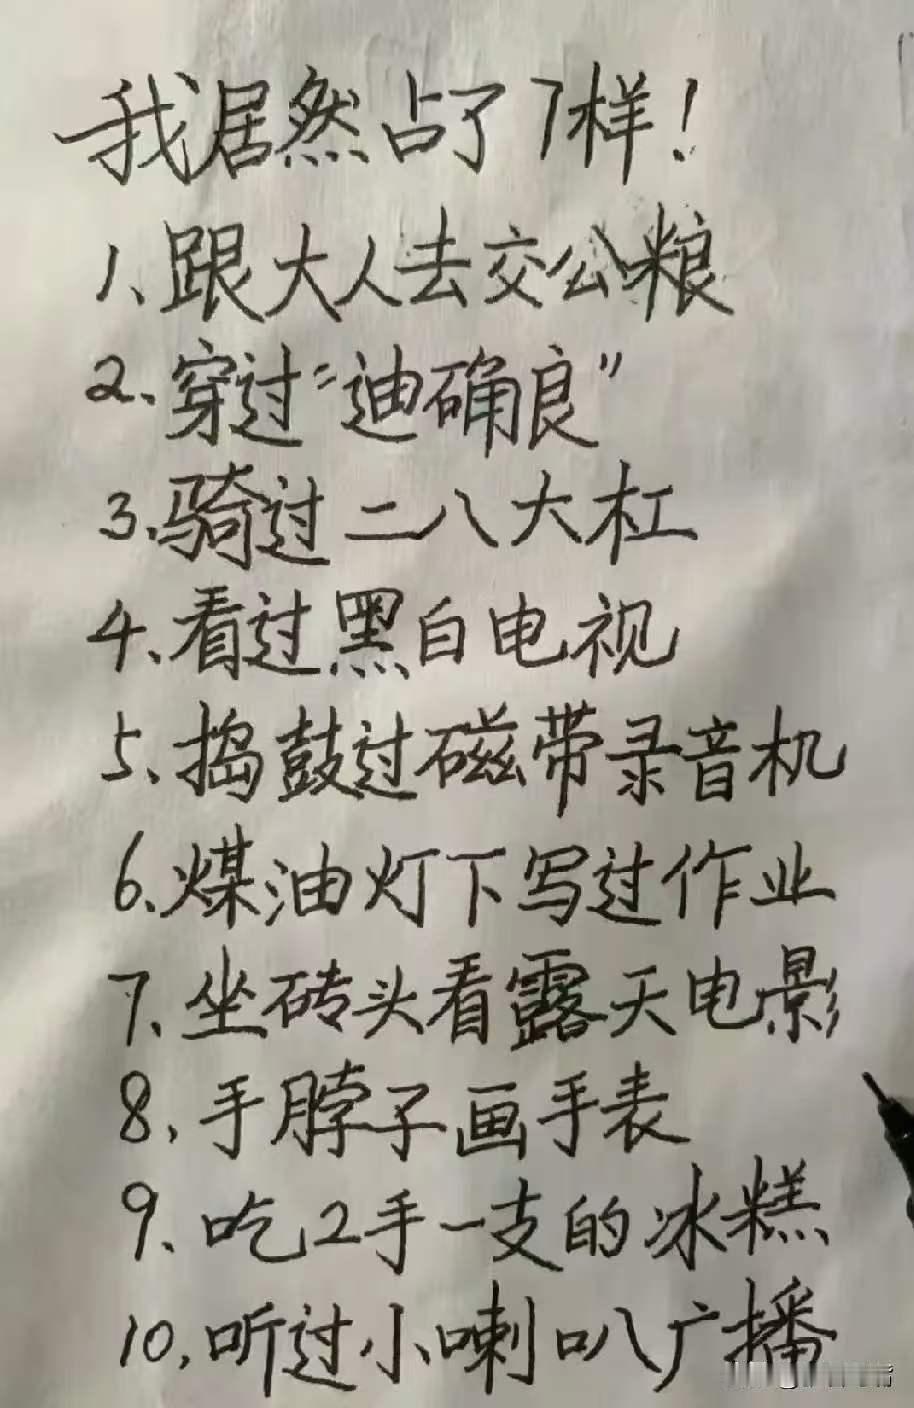 我居然占了7样！
1、跟大人去交公粮
2、穿过“迪确良”
3、骑过二八大杠
4、看过黑白电视
5、捣鼓过磁带录音机
6、煤油灯下写过作业
7、坐砖头看露天电影
8、手脖子画手表
9、吃2手一支的冰糕
10、听过小喇叭广播